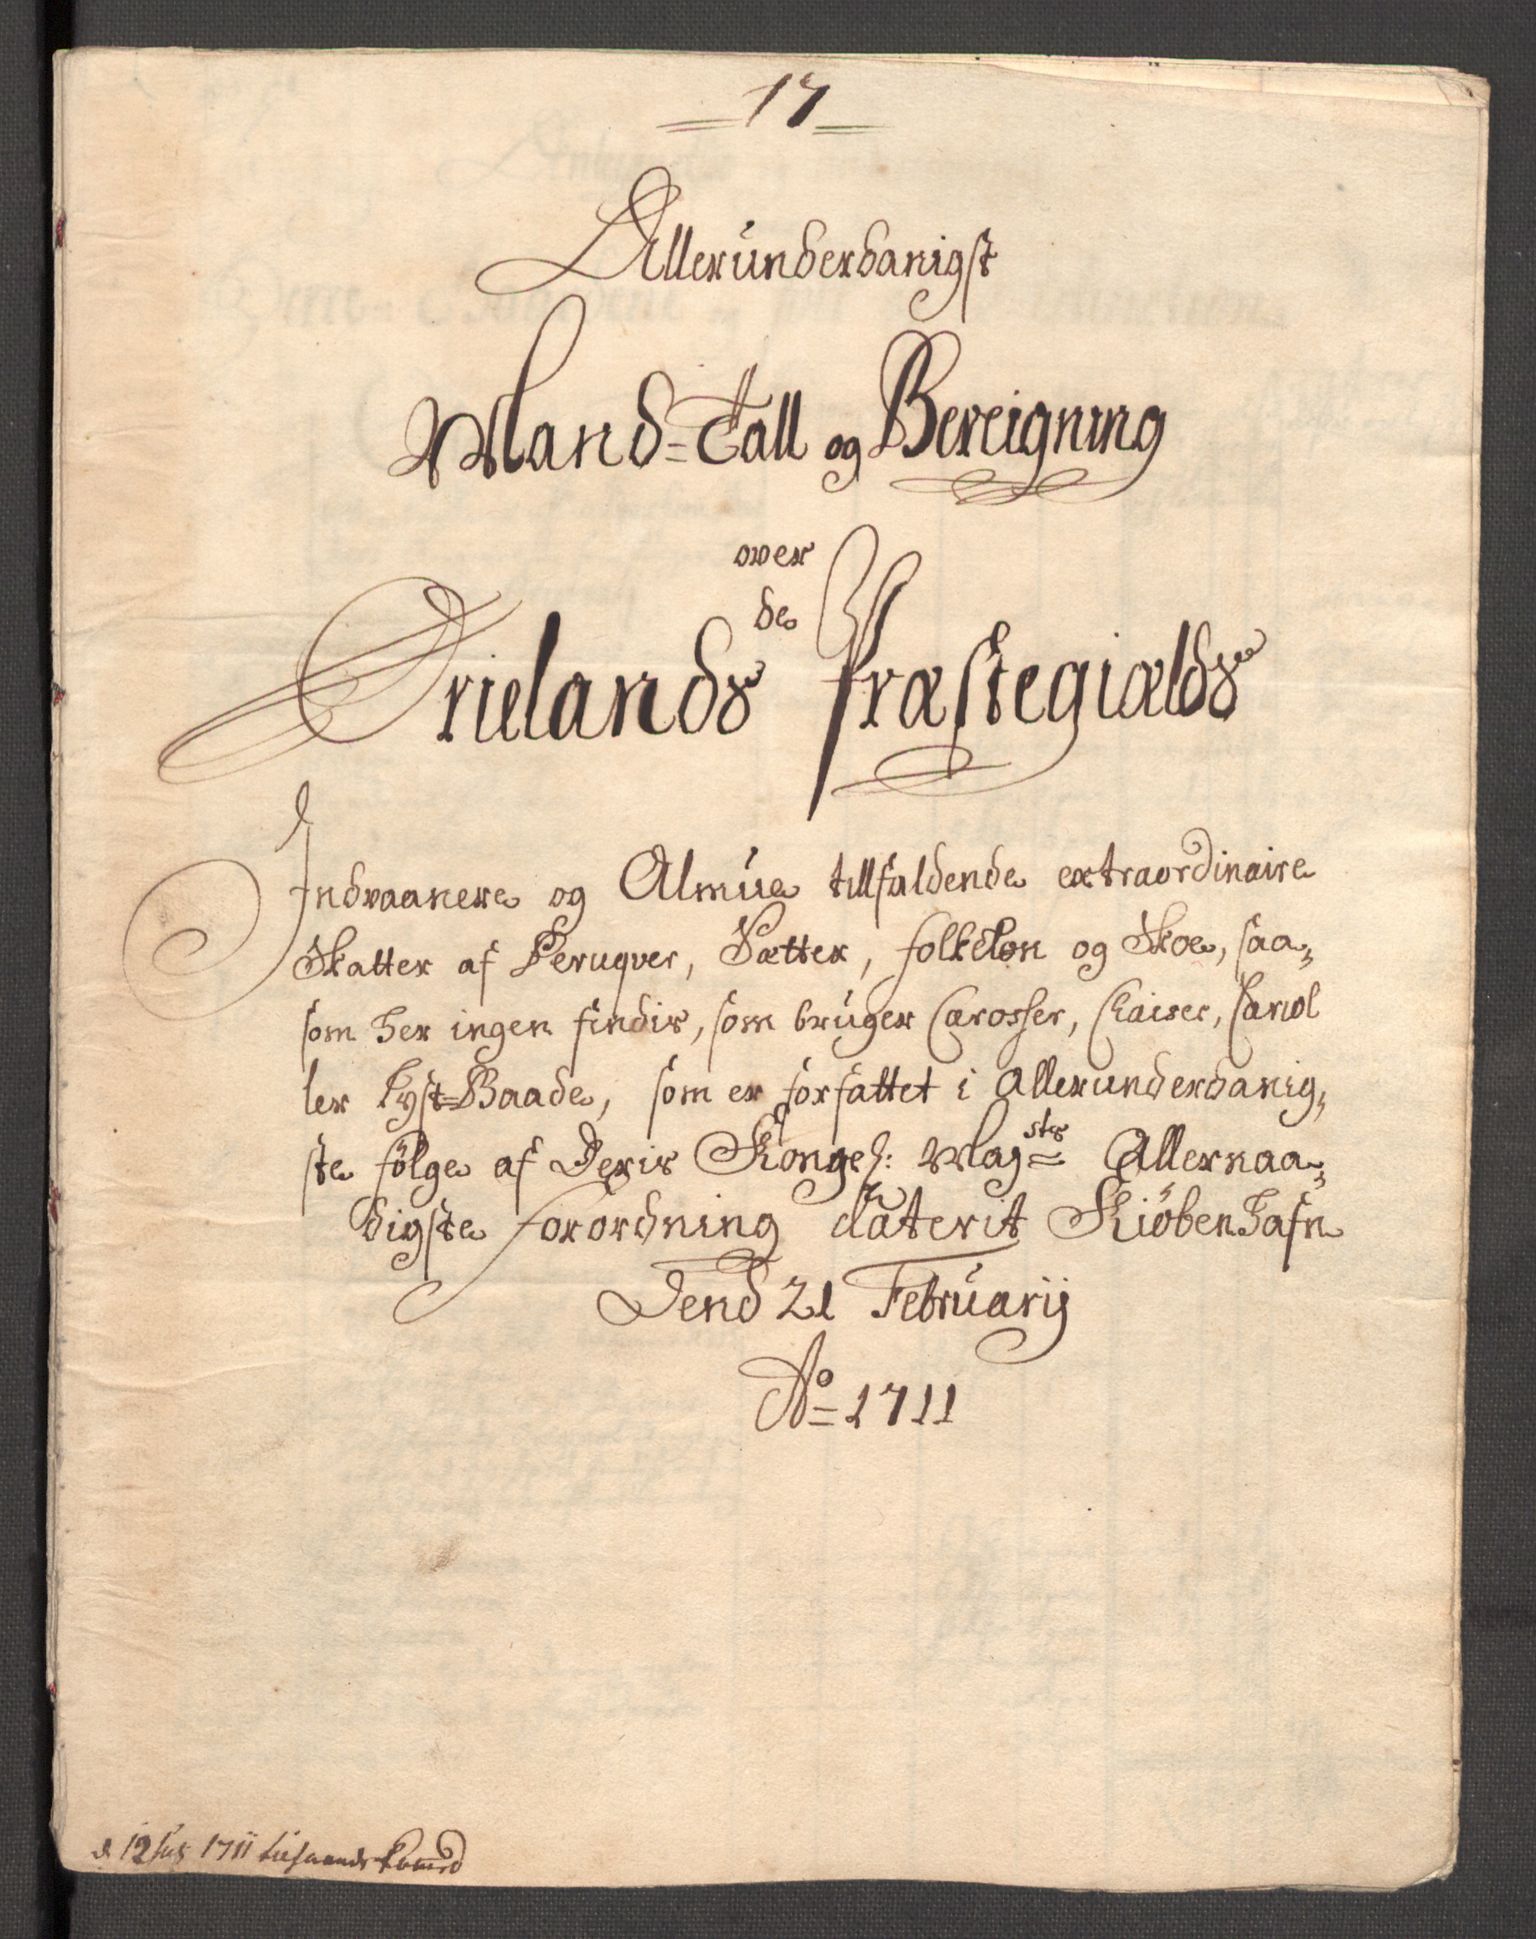 17
Allerunderdanigst
Mand=Tall og Bereigning
over
de
Ørielands Præstegiælds
Indvaanere og Almue tillfaldende extraordinaire
Skatter af Peruqver, Sætter, folkelon og Skoe, saa,,
som her ingen findis, som bruger Carosser, Chaiser, Cariol
ler Lyst=Baade, som er forfattet i allerunderdanig,,
ste følge af Deris Kongel: Maj sts Allernaa,,
digste forordning daterit Kiøbenhafn
Dend 21 Februarij
Ao= 1711
d 12 1711